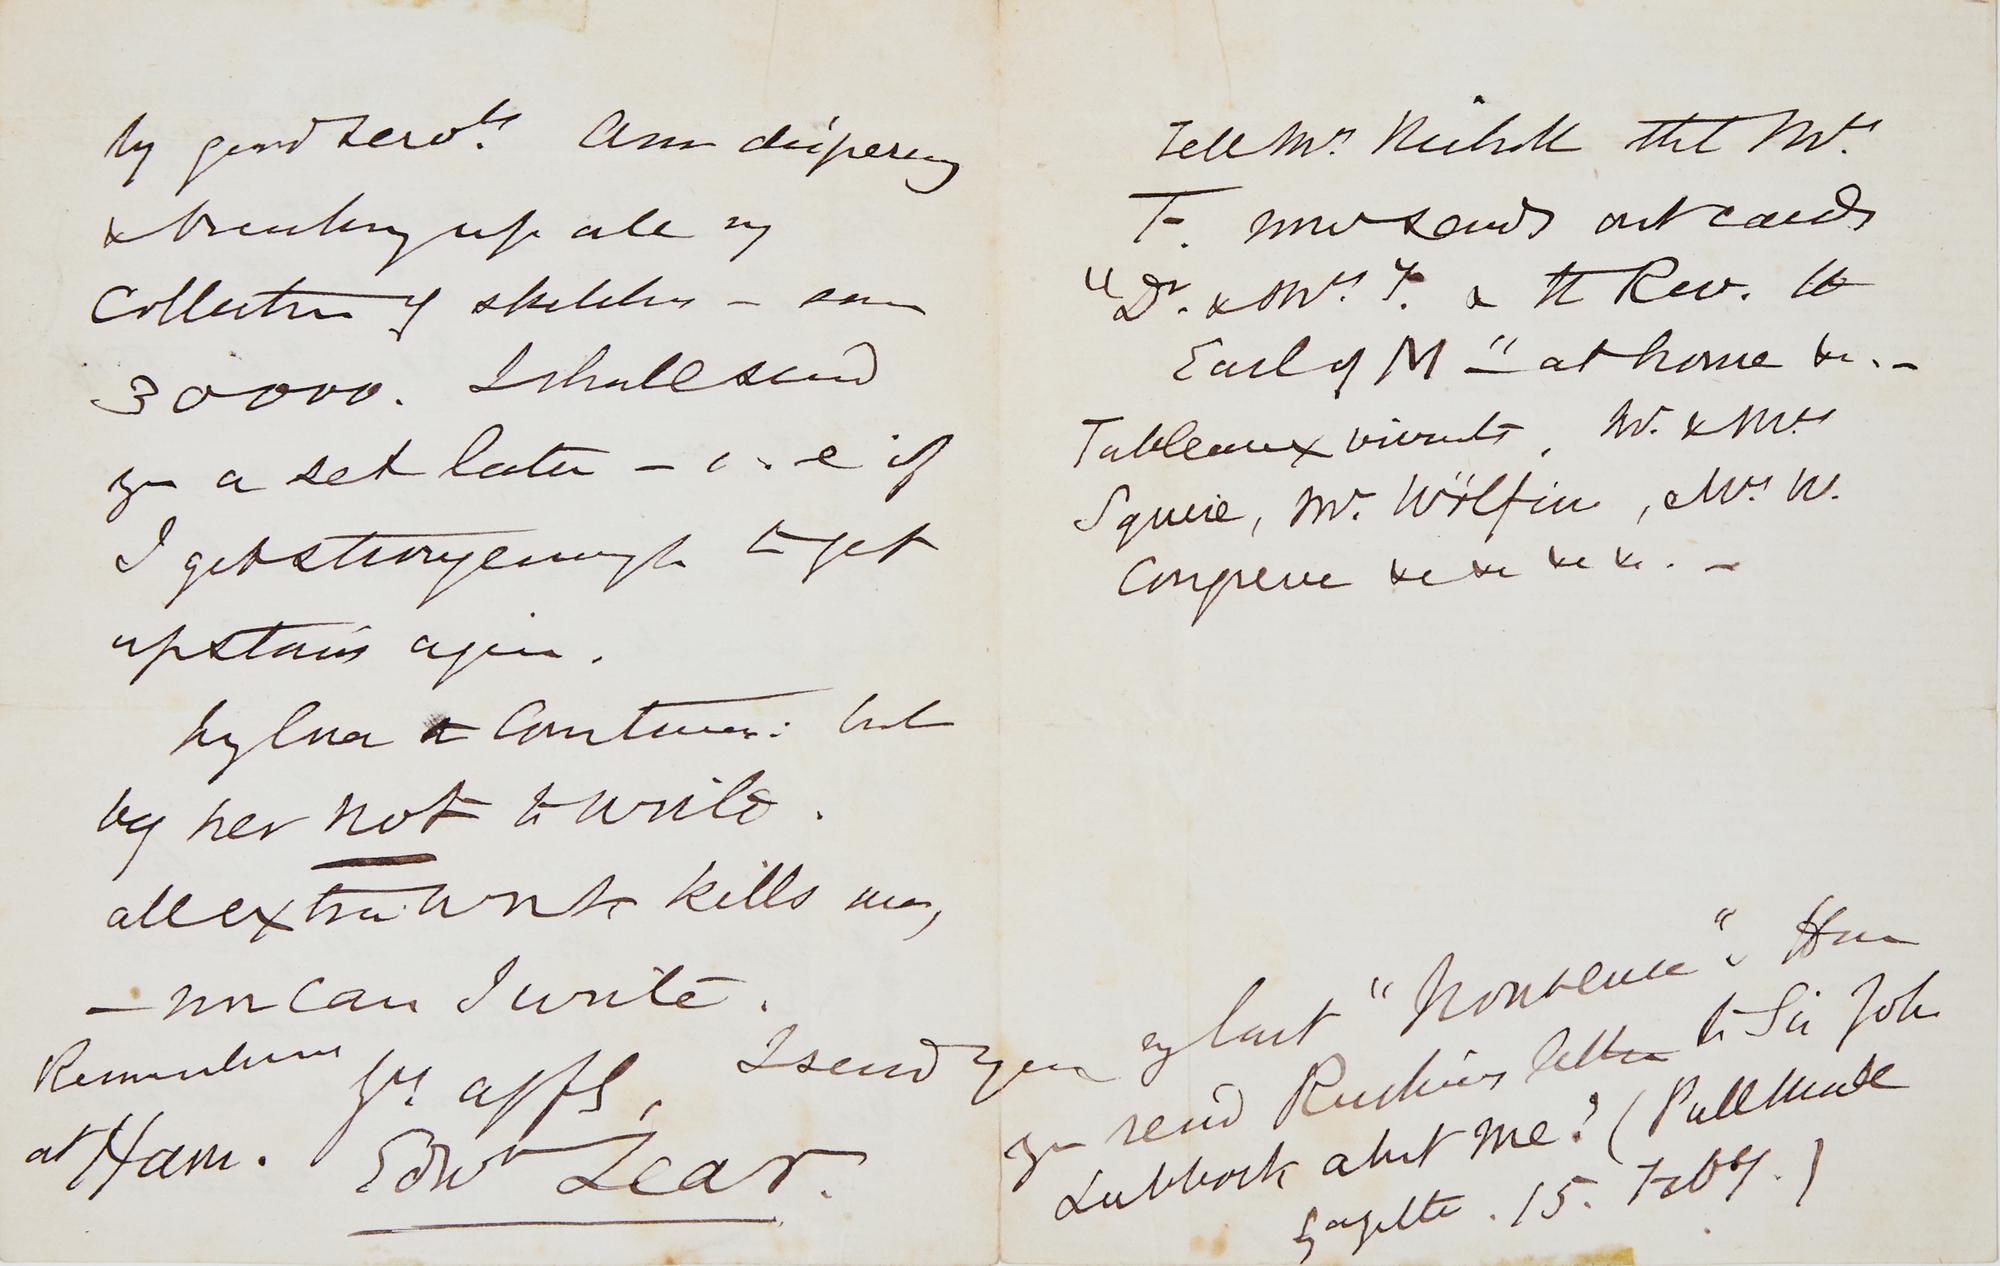 my good servts. Am dispersing
& breaking up all my
Collection of sketches — some
30000. I shall send
you a set later — i.e if
I get strong enough to get
upstairs again.
My love to Continue: but
beg her not to write.
all extra work kills me,
— nor can I write.
Remembrances
at Ham.
Yrs affly,
Edwd Lear.
Tell Mr. Nicholl that Mrs.
F. now sends out cards
"Dr. & Mrs. F. & the Rev. the
Earl of M" — at home &c. —
Tableaux vivants, Mr. & Mrs
Squire, Mr. Wölfin, Mrs. W.
Congreve &c &c &c &c. —
I send you my last "Nonsense". Have
you read Ruskin's letter to Sir John
Lubbock about me? (Pall Mall
Gazette. 15. Feby.)